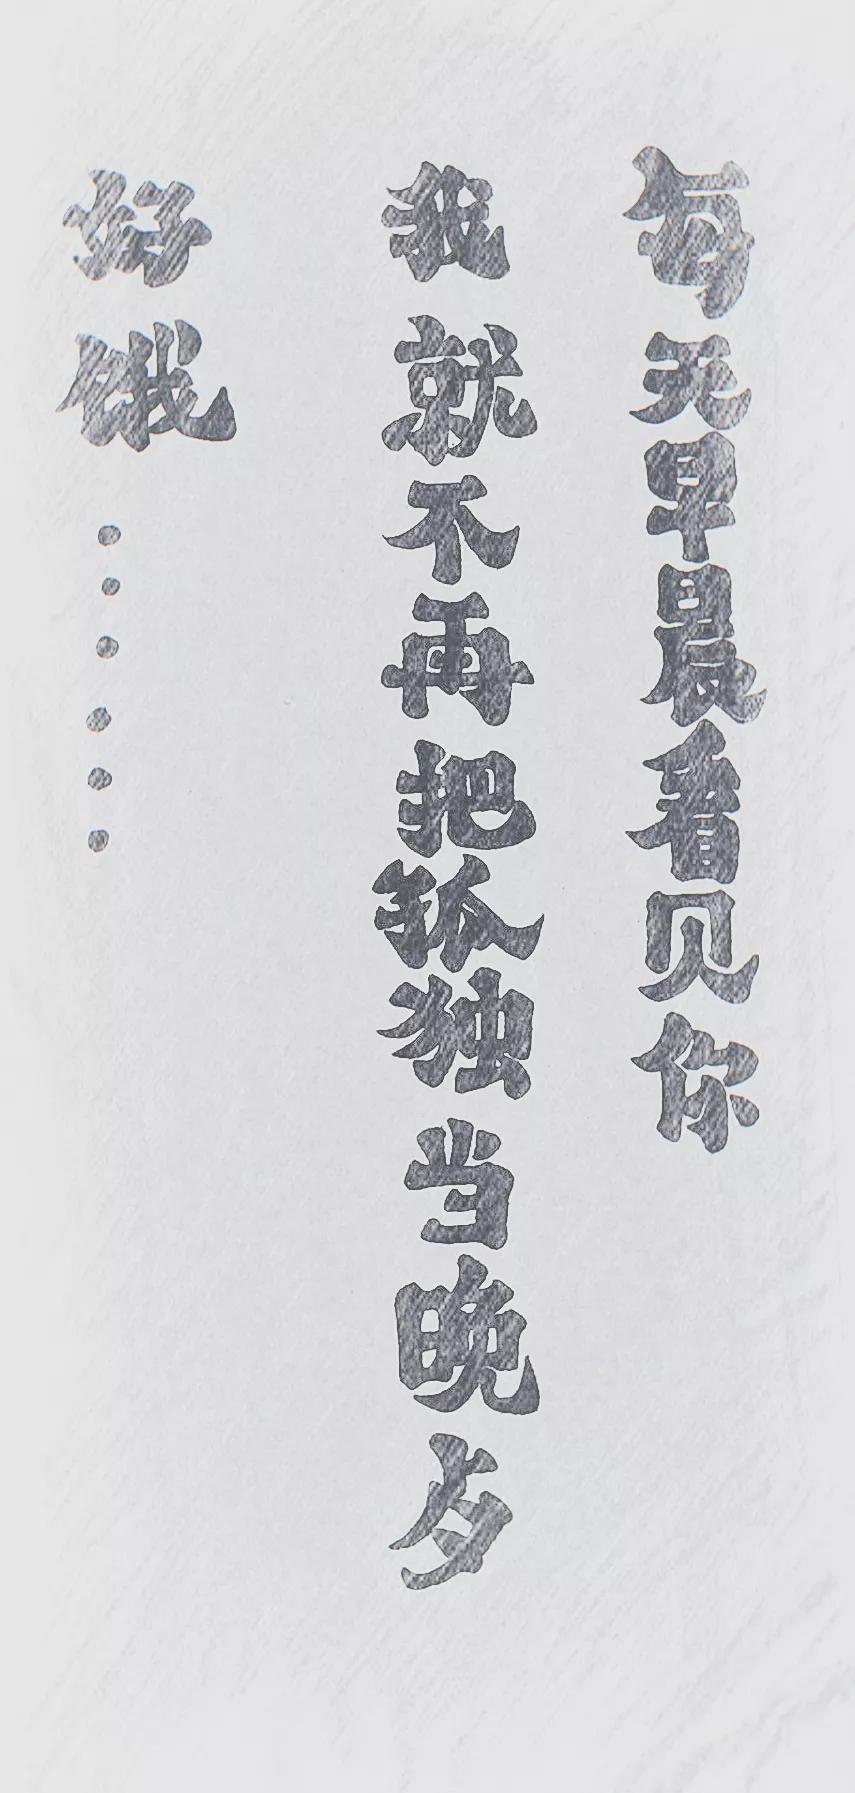 每天早晨看贝你
我就不再把孤独当晚歺
好饿……